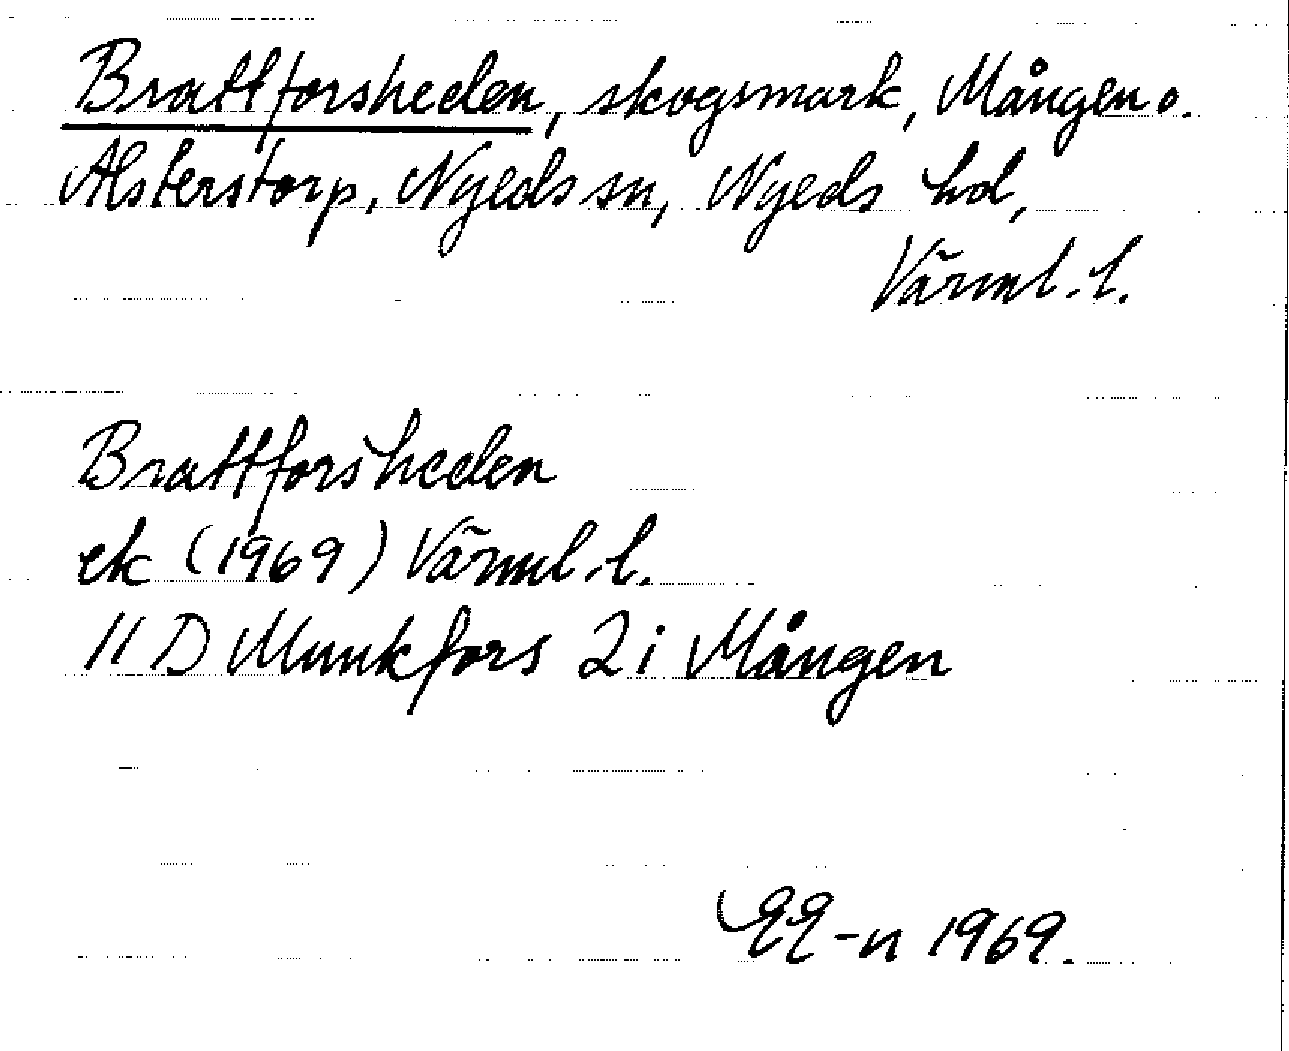 Brattforsheden, skogsmark, Mången o.
Alsterstorp, Nyeds sn, Nyeds hd,
Värml. l.
Brattforsheden
ek (1969) Värml. l.
11 D Munkfors 2 i Mången
1969.